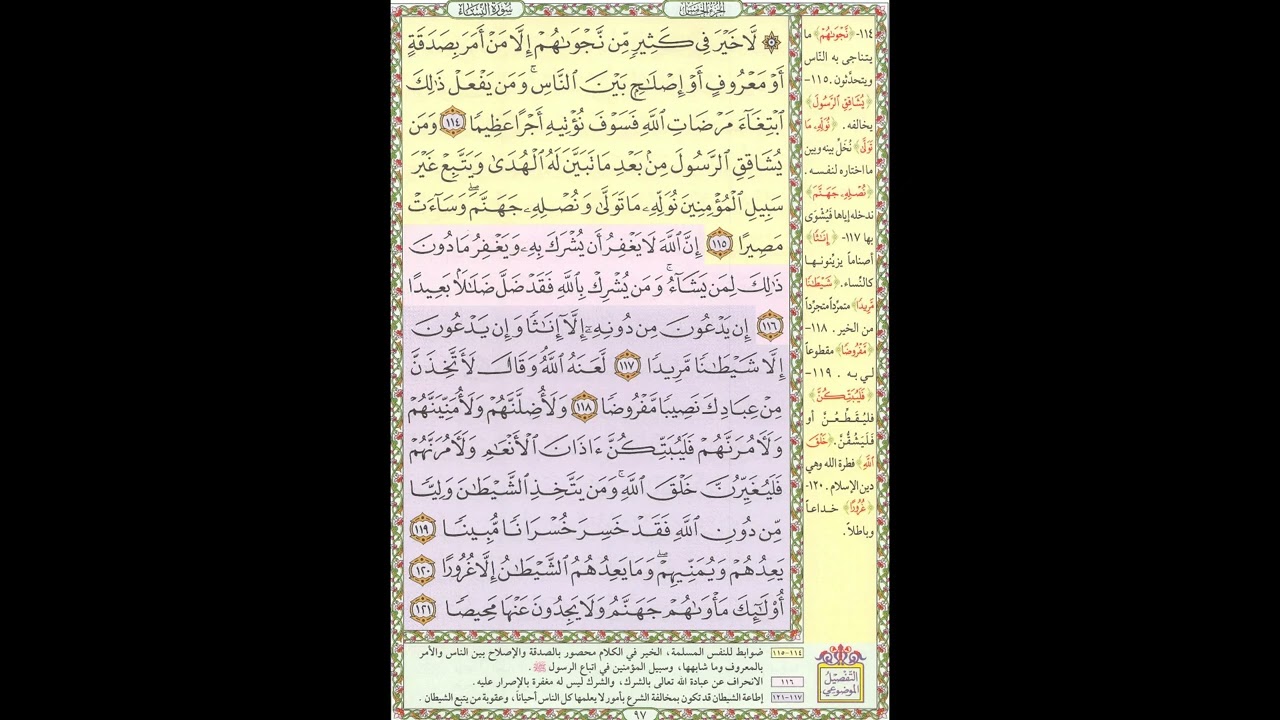 سُورَةُ النِّسَاءِ
الجُزْءُ الخَامِسُ
۞ لَّا خَيْرَ فِى كَثِيرٍ مِّن نَّجْوَىٰهُمْ إِلَّا مَنْ أَمَرَ بِصَدَقَةٍ
أَوْ مَعْرُوفٍ أَوْ إِصْلَٰحٍۭ بَيْنَ ٱلنَّاسِ ۚ وَمَن يَفْعَلْ ذَٰلِكَ
ٱبْتِغَآءَ مَرْضَاتِ ٱللَّهِ فَسَوْفَ نُؤْتِيهِ أَجْرًا عَظِيمًا ١١٤ وَمَن
يُشَاقِقِ ٱلرَّسُولَ مِنۢ بَعْدِ مَا تَبَيَّنَ لَهُ ٱلْهُدَىٰ وَيَتَّبِعْ غَيْرَ
سَبِيلِ ٱلْمُؤْمِنِينَ نُوَلِّهِۦ مَا تَوَلَّىٰ وَنُصْلِهِۦ جَهَنَّمَ ۖ وَسَآءَتْ
مَصِيرًا ١١٥ إِنَّ ٱللَّهَ لَا يَغْفِرُ أَن يُشْرَكَ بِهِۦ وَيَغْفِرُ مَا دُونَ
ذَٰلِكَ لِمَن يَشَآءُ ۚ وَمَن يُشْرِكْ بِٱللَّهِ فَقَدْ ضَلَّ ضَلَٰلًۢا بَعِيدًا
١١٦ إِن يَدْعُونَ مِن دُونِهِۦٓ إِلَّآ إِنَٰثًا وَإِن يَدْعُونَ
إِلَّا شَيْطَٰنًا مَّرِيدًا ١١٧ لَّعَنَهُ ٱللَّهُ ۘ وَقَالَ لَأَتَّخِذَنَّ
مِنْ عِبَادِكَ نَصِيبًا مَّفْرُوضًا ١١٨ وَلَأُضِلَّنَّهُمْ وَلَأُمَنِّيَنَّهُمْ
وَلَءَامُرَنَّهُمْ فَلَيُبَتِّكُنَّ ءَاذَانَ ٱلْأَنْعَٰمِ وَلَءَامُرَنَّهُمْ
فَلَيُغَيِّرُنَّ خَلْقَ ٱللَّهِ ۚ وَمَن يَتَّخِذِ ٱلشَّيْطَٰنَ وَلِيًّا
مِّن دُونِ ٱللَّهِ فَقَدْ خَسِرَ خُسْرَانًا مُّبِينًا ١١٩
يَعِدُهُمْ وَيُمَنِّيهِمْ ۖ وَمَا يَعِدُهُمُ ٱلشَّيْطَٰنُ إِلَّا غُرُورًا ١٢٠
أُو۟لَٰٓئِكَ مَأْوَىٰهُمْ جَهَنَّمُ وَلَا يَجِدُونَ عَنْهَا مَحِيصًا ١٢١
١١٤- ﴿نَّجْوَىٰهُمْ﴾ ما
يتناجى به النّاس
ويتحدّثون. ١١٥-
﴿يُشَاقِقِ ٱلرَّسُولَ﴾
يخالفه. ﴿نُوَلِّهِۦ مَا
تَوَلَّىٰ﴾ نُخَلِّ بينه وبين
ما اختاره لنفسه.
﴿نُصْلِهِۦ جَهَنَّمَ﴾
ندخله إياها فَيُشْوَى
بها ١١٧- ﴿إِنَٰثًا﴾
أصناماً يزيّنونها
كالنِّساء. ﴿شَيْطَٰنًا
مَّرِيدًا﴾ متمرّداً متجرّداً
من الخير. ١١٨-
﴿مَّفْرُوضًا﴾ مقطوعاً
لي به. ١١٩-
﴿فَلَيُبَتِّكُنَّ﴾
فليُقَطِّعُنَّ أو
فَلَيَشُقُّنَّ. ﴿خَلْقَ
ٱللَّهِ﴾ فطرة الله وهي
دين الإسلام. ١٢٠-
﴿غُرُورًا﴾ خداعاً
وباطلاً.
التَّفْصِيلُ
المَوْضُوعِي
١١٤-١١٥ ضوابط للنفس المسلمة، الخير في الكلام محصور بالصدقة والإصلاح بين الناس والأمر
بالمعروف وما شابهها، وسبيل المؤمنين في اتباع الرسول ﷺ.
١١٦ الانحراف عن عبادة الله تعالى بالشرك، والشرك ليس له مغفرة بالإصرار عليه.
١١٧-١٢١ إطاعة الشيطان قد تكون بمخالفة الشرع بأمور لا يعلمها كل الناس أحياناً، وعقوبة من يتبع الشيطان.
٩٧